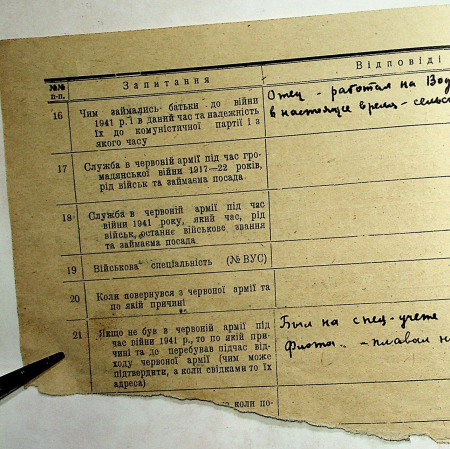 №№ п-п.
Запитання
Відповіді
16
Чим займались батьки до війни
1941 р. і в даний час та належність
їх до комуністичної партії і з
якого часу
Отец - работал на Вод
в настоящее время - сельс
17
Служба в червоній армії під час гро-
мадянської війни 1917—22 років,
рід військ та займаєма посада
18
Служба в червоній армії під час
війни 1941 року, який час, рід
військ, останнє військове звання
та займаєма посада
19
Військова спеціальність (№ ВУС)
20
Коли повернувся з червоної армії та
по якій причині
21
Якщо не був в червоній армії під
час війни 1941 р., то по якій при-
чині та де перебував підчас від-
ходу червоної армії (чим може
підтвердити, а коли свідками то їх
адреса)
Был на спец-учете
Флота - плавал н
коли по-